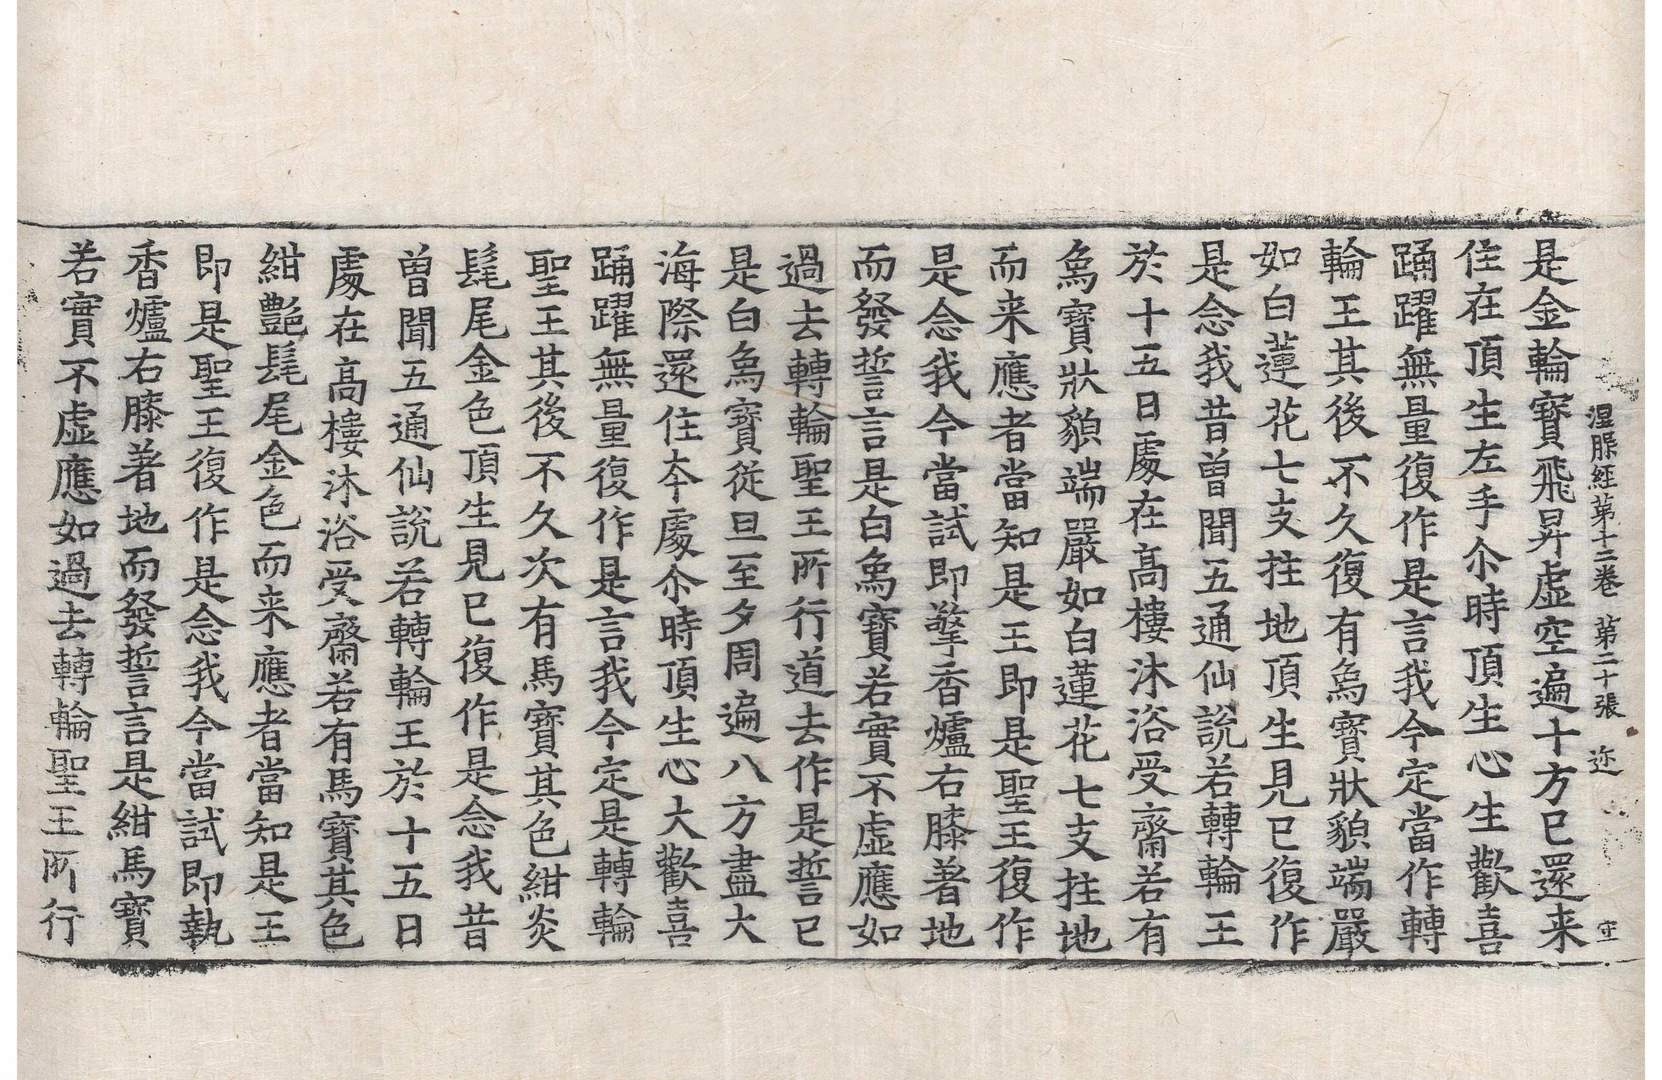 涅槃經第十二卷 第二十張 迩
是金輪寶飛昇虛空遍十方已還来
住在頂生左手尒時頂生心生歡喜
踊躍無量復作是言我今定當作轉
輪王其後不久復有象寶狀貌端嚴
如白蓮花七支拄地頂生見已復作
是念我昔曾聞五通仙說若轉輪王
於十五日處在高樓沐浴受齋若有
象寶狀貌端嚴如白蓮花七支拄地
而来應者當知是王即是聖王復作
是念我今當試即擎香爐右膝著地
而發誓言是白象寶若實不虛應如
過去轉輪聖王所行道去作是誓已
是白象寶從旦至夕周遍八方盡大
海際還住本處尒時頂生心大歡喜
踊躍無量復作是言我今定是轉輪
聖王其後不久次有馬寶其色紺炎
髦尾金色頂生見已復作是念我昔
曾聞五通仙說若轉輪王於十五日
處在高樓沐浴受齋若有馬寶其色
紺艶髦尾金色而来應者當知是王
即是聖王復作是念我今當試即執
香爐右膝著地而發誓言是紺馬寶
若實不虛應如過去轉輪聖王所行